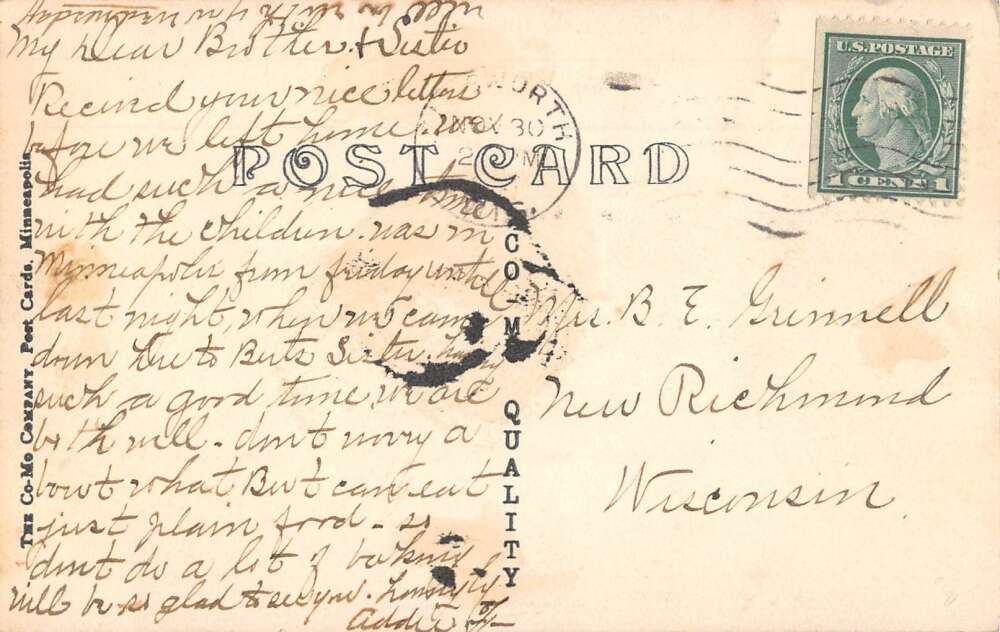 My Dear Brother & Sister
Recived your nice letters
before we left home. we
had such a nice time
with the children. was in
Minneapolis from friday untill
last night, when we came
down here to Berts Sister. having
such a good time, we are
both well - dont worry a
bout what Bert can eat
just plain food - so
dont do a lot of baking
will be so glad to see you.
Addie
POST CARD
THE CO-MO COMPANY, Post Cards, Minneapolis
CO-MO QUALITY
WORTH
NOV 30
2 PM
U.S. POSTAGE
1 CENT 1
Mrs. B. E. Grinnell
New Richmond
Wisconsin.